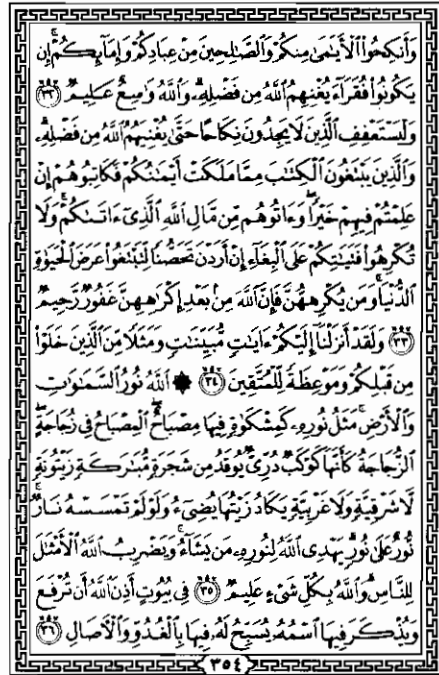 وَأَنكِحُوا۟ ٱلْأَيَـٰمَىٰ مِنكُمْ وَٱلصَّـٰلِحِينَ مِنْ عِبَادِكُمْ وَإِمَآئِكُمْ ۚ إِن
يَكُونُوا۟ فُقَرَآءَ يُغْنِهِمُ ٱللَّهُ مِن فَضْلِهِۦ ۗ وَٱللَّهُ وَٰسِعٌ عَلِيمٌ ﴿٣٢﴾
وَلْيَسْتَعْفِفِ ٱلَّذِينَ لَا يَجِدُونَ نِكَاحًا حَتَّىٰ يُغْنِيَهُمُ ٱللَّهُ مِن فَضْلِهِۦ ۗ
وَٱلَّذِينَ يَبْتَغُونَ ٱلْكِتَـٰبَ مِمَّا مَلَكَتْ أَيْمَـٰنُكُمْ فَكَاتِبُوهُمْ إِنْ
عَلِمْتُمْ فِيهِمْ خَيْرًا ۖ وَءَاتُوهُم مِّن مَّالِ ٱللَّهِ ٱلَّذِىٓ ءَاتَىٰكُمْ ۚ وَلَا
تُكْرِهُوا۟ فَتَيَـٰتِكُمْ عَلَى ٱلْبِغَآءِ إِنْ أَرَدْنَ تَحَصُّنًا لِّتَبْتَغُوا۟ عَرَضَ ٱلْحَيَوٰةِ
ٱلدُّنْيَا ۚ وَمَن يُكْرِههُّنَّ فَإِنَّ ٱللَّهَ مِنۢ بَعْدِ إِكْرَٰهِهِنَّ غَفُورٌ رَّحِيمٌ
﴿٣٣﴾ وَلَقَدْ أَنزَلْنَآ إِلَيْكُمْ ءَايَـٰتٍ مُّبَيِّنَـٰتٍ وَمَثَلًا مِّنَ ٱلَّذِينَ خَلَوْا۟
مِن قَبْلِكُمْ وَمَوْعِظَةً لِّلْمُتَّقِينَ ﴿٣٤﴾ ۞ ٱللَّهُ نُورُ ٱلسَّمَـٰوَٰتِ
وَٱلْأَرْضِ ۚ مَثَلُ نُورِهِۦ كَمِشْكَوٰةٍ فِيهَا مِصْبَاحٌ ۖ ٱلْمِصْبَاحُ فِى زُجَاجَةٍ ۖ
ٱلزُّجَاجَةُ كَأَنَّهَا كَوْكَبٌ دُرِّىٌّ يُوقَدُ مِن شَجَرَةٍ مُّبَـٰرَكَةٍ زَيْتُونَةٍ
لَّا شَرْقِيَّةٍ وَلَا غَرْبِيَّةٍ يَكَادُ زَيْتُهَا يُضِىٓءُ وَلَوْ لَمْ تَمْسَسْهُ نَارٌ ۚ
نُّورٌ عَلَىٰ نُورٍ ۗ يَهْدِى ٱللَّهُ لِنُورِهِۦ مَن يَشَآءُ ۚ وَيَضْرِبُ ٱللَّهُ ٱلْأَمْثَـٰلَ
لِلنَّاسِ ۗ وَٱللَّهُ بِكُلِّ شَىْءٍ عَلِيمٌ ﴿٣٥﴾ فِى بُيُوتٍ أَذِنَ ٱللَّهُ أَن تُرْفَعَ
وَيُذْكَرَ فِيهَا ٱسْمُهُۥ يُسَبِّحُ لَهُۥ فِيهَا بِٱلْغُدُوِّ وَٱلْـَٔاصَالِ ﴿٣٦﴾
٣٥٤